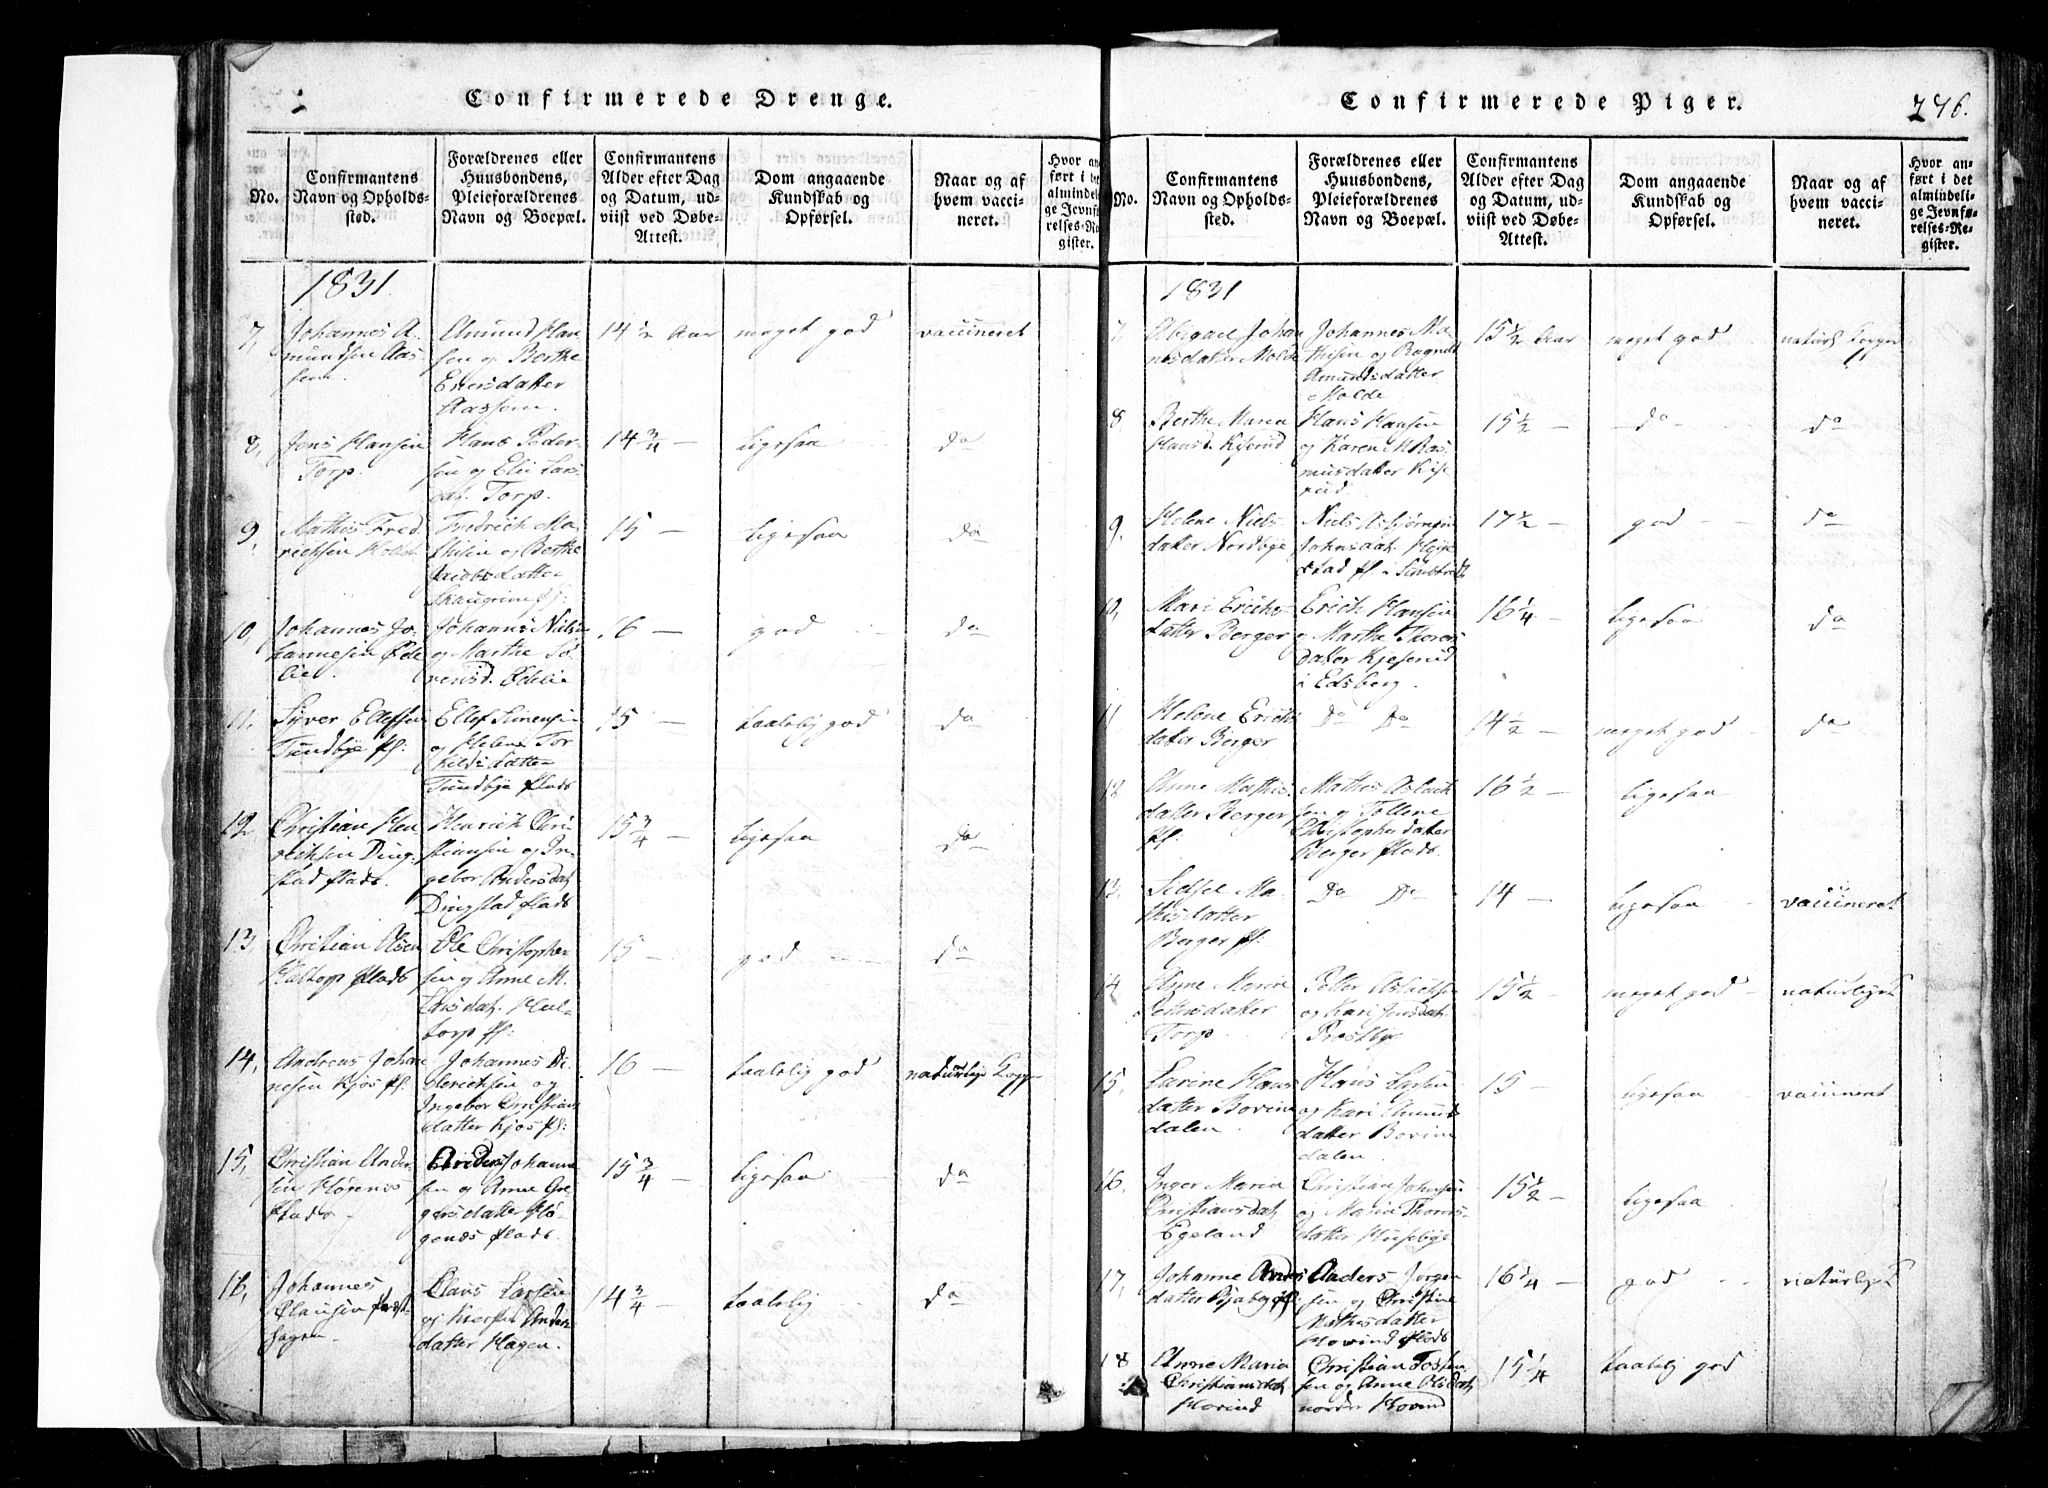 Confirmerede Drenge.
No.
Confirmantens
Navn og Opholds-
sted.
Forældrenes eller
Huusbondens,
Pleieforældrenes
Navn og Boepæl.
Confirmantens
Alder efter Dag
og Datum, ud-
viist ved Døbe-
Attest.
Dom angaaende
Kundskab og
Opførsel.
Naar og af
hvem vacci-
neret.
Hvor an-
ført i det
almindeli-
ge Jevnfø-
relses-Re-
gister.
1831
7,
Johannes A-
mundsen Aas
sem.
Amund Han
sen og Berthe
Enersdatter
Aassem.
14 1/2 Aar
meget god
vaccineret
8,
Jens Hansen
Torp.
Hans Peder-
sen og Elie Lars
dat. Torp.
14 3/4 —
ligesaa
do
9,
Mathis Fred
richsen
Fredrich Ma-
thisen og Berthe
Jacobsdatter
15 —
ligesaa
do
10,
Johannes Jo-
hannesen Øde
lie.
Johannes Niels
og Marthe Sø-
rensd. Ødelie
16 —
god
do
11,
Syver Ellefsen
Tundbye pl:
Ellef Simensen
og Helene Tor
kildsdatter
Tundbye plads
15 —
taalelig god
do
12,
Christian Hen
richsen Ding-
stad plads.
Henrich Chri-
stiansen og In-
gebor Andersdat.
Dingstad plads
15 3/4 —
ligesaa
do
13,
Christian Olsen
Haltorp plads
Ole Christopher
sen og Anne M.
Larsdat. Hal-
torp pl:
15 —
god
do
14,
Andreas Johan
nesen Kjos pl:
Johannes Di-
derichsen og
Ingebor Christians
datter Kjos pl:
16 —
taalelig god
naturlige Kopper
15,
Christian Ander
sen Høgenes
plads
Anders Johanne
sen og Anne Gre
gersdatter Hø-
genæs plads.
15 3/4 —
ligesaa
do
16,
Johannes
Clausen
hagen
Claus Larsen
og Kiersti Anders
datter Hagen.
14 3/4 —
taalelig
do
Confirmerede Piger.
276.
No.
Confirmantens
Navn og Opholds-
sted.
Forældrenes eller
Huusbondens,
Pleieforældrenes
Navn og Boepæl.
Confirmantens
Alder efter Dag
og Datum, ud-
viist ved Døbe-
Attest.
Dom angaaende
Kundskab og
Opførsel.
Naar og af
hvem vacci-
neret.
Hvor an-
ført i det
almindeli-
ge Jevnfø-
relses-Re-
gister.
1831
7,
Abigael Johan
nesdatter Molde
Johannes Ma-
thisen og Ragnild
Amundsdatter
Molde
15 1/2 Aar
meget god
8
Berthe Maria
Hansd. Kjserud
Hans Hansen
og Karen M Ras
musdatter Kise
rud.
15 1/2 —
do
do
9,
Helene Niels
datter Nordbye
Niels Asbjørnsen
Johnsdat. Høje
stad pl.
17 1/2 —
god
do
10,
Mari Erichs-
datter Berger
Erich Hansen
og Marthe Thores
datter Kjeserud
i Edsberg.
16 1/4 —
ligesaa
do
11
Helene Erichs
datter Berger
Do Do
14 1/2 —
meget god
do
12
Anne Mathis-
datter Berger
pl.
Mathis Aslack
sen og Tollene
Christophersdatter
Berger plads.
16 1/2 —
ligesaa
13,
Sidsel Ma-
thisdatter
Berger pl:
Do Do
14 —
ligesaa
vaccineret
14
Anne Maria
Pettersdatter
Torp
Petter Aslacksen
og Kari Jensdat.
15 1/2 —
meget god
15,
Larine Hans
datter Bovin
dalen
Hans Larsen
og Kari Amunds
datter Bovin
dalen.
15 —
ligesaa
vaccineret
16,
Inger Maria
Christiansdat.
Egeland
Christian Johnsen
og Maria Thorns-
datter Husebye
15 1/2 —
ligesaa
17,
Johanne Anders
datter pl.
Anders Jørgen
sen og Christine
Mathisdatter
Hovind plads
16 1/4 —
god
18
Anne Maria
Christiansdat.
Hovind
Christian Tosten
sen og Anne Olsdat.
nordre Hovind
15 1/4
taalelig god